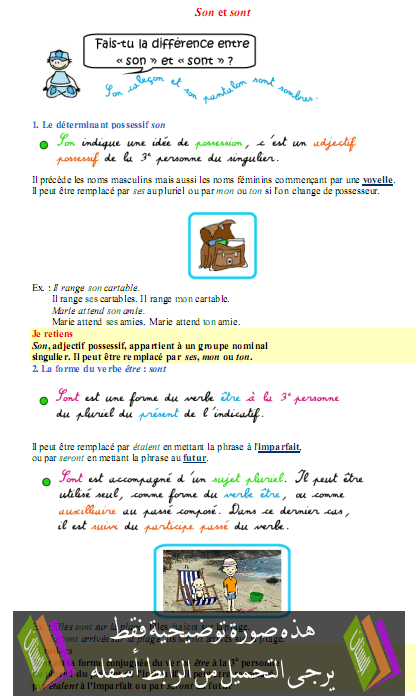 Son et sont
Fais-tu la différence entre
« son » et « sont » ?
Son caleçon et son pantalon sont sombres.
1. Le déterminant possessif son
Son indique une idée de possession, c'est un adjectif
possessif de la 3e personne du singulier.
Il précède les noms masculins mais aussi les noms féminins commençant par une voyelle.
Il peut être remplacé par ses au pluriel ou par mon ou ton si l'on change de possesseur.
Ex. : Il range son cartable.
Il range ses cartables. Il range mon cartable.
Marie attend son amie.
Marie attend ses amies. Marie attend ton amie.
Je retiens
Son, adjectif possessif, appartient à un groupe nominal
singulier. Il peut être remplacé par ses, mon ou ton.
2. La forme du verbe être : sont
Sont est une forme du verbe être à la 3e personne
du pluriel du présent de l'indicatif.
Il peut être remplacé par étaient en mettant la phrase à l'imparfait,
ou par seront en mettant la phrase au futur.
Sont est accompagné d'un sujet pluriel. Il peut être
utilisé seul, comme forme du verbe être, ou comme
auxiliaire au passé composé. Dans ce dernier cas,
il est suivi du participe passé du verbe.
Elles sont sur la plage.
sont arrivés sur la plage
هذه صورة توضيحية فقط
la forme conjuguée du verbe être à la 3e personne
يرجى التحميل من الرابط أسفله
étaient à l'imparfait ou par seront au futur